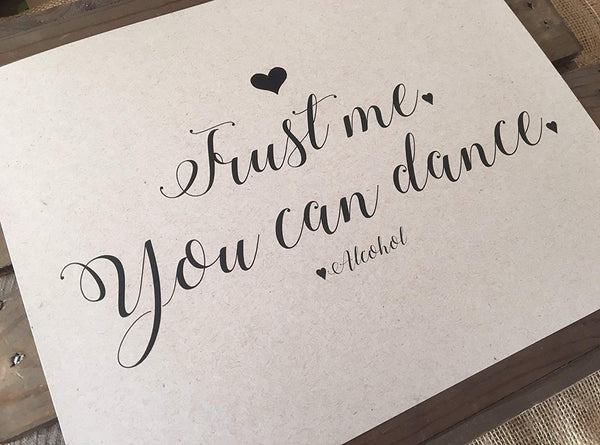 Trust me.
You can dance.
Alcohol